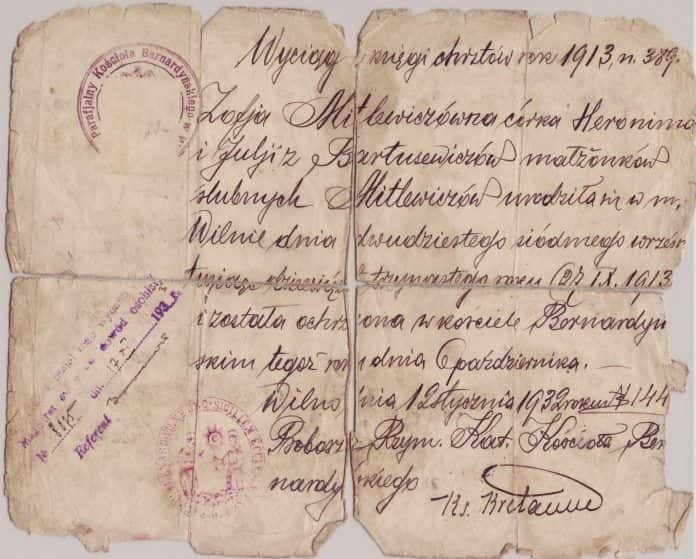 Parafjalny Kościoła Bernardyńskiego w W
Wyciąg z księgi chrztów rok 1913, n. 389.
Zofja Mitlewiczówna córka Heronima
i Julji z Bartusewiczów małżonków
ślubnych Mitlewiczów urodziła się w m.
Wilnie dnia dwudziestego siódmego wrześn
trzynastego roku (27 IX. 1913
i została ochrz ona w kościele Bernardyń
skim tegoż rok dnia 6 października. —
Wilno nia 12 stycznia 1932 roku № 144
Probosz Rzym. Kat. Kościoła Ber
nardyńskiego
Ks.
dowód osobisty
193
№
dn.
Referent
SIGILLUM